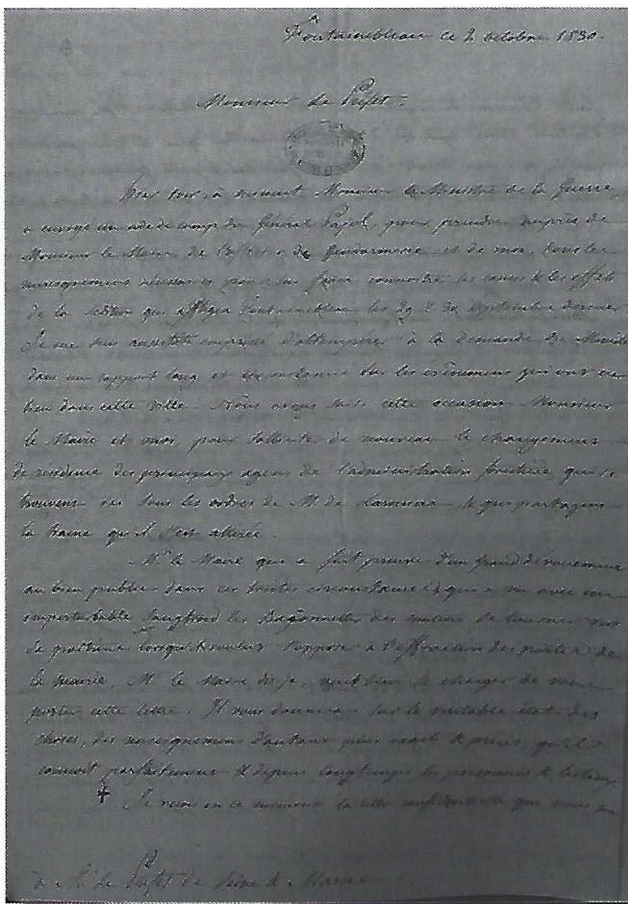 Fontainebleau ce 2 octobre 1830.
Monsieur Le Préfet :
Hier soir, à minuit Monsieur le Ministre de la Guerre,
a envoyé un aide de camp du Général Pajol, pour prendre, auprès de
Monsieur le Maire, de l'officier de Gendarmerie et de moi, tous les
renseignemens nécessaires pour lui faire connoitre les causes & les effets
de la sédition qui affligea Fontainebleau les 29 & 30 septembre dernier
Je me suis aussitôt empressé d'obtempérer à la demande du Ministre
dans un rapport long et circonstancié sur les évènemens qui ont eu
lieu dans cette ville. Nous avons saisi cette occasion Monsieur
le Maire et moi, pour solliciter de nouveau le changement
de résidence des principaux agens de l'administration forestière qui se
trouvent ici sous les ordres de M. de & qui partagent
la haine qu'il s'est attirée.
Mr le Maire qui a fait preuve d'un grand dévouement
au bien public dans ces tristes circonstances & qui a vu avec un
imperturbable sangfroid les Bayonnettes des mutins se tourner vers
sa poitrine lorsqu'il voulut s'opposer à l'effraction des portes de
la mairie, M. le Maire dis-je, veut bien se charger de vous
porter cette lettre. Il vous donnera sur le véritable état des
choses, des renseignemens d'autant plus exacts & précis, qu'il
connoit parfaitement & depuis longtemps les personnes &
Je reçois en ce moment la lettre confidentielle que vous
à Mr le Préfet de Seine & Marne